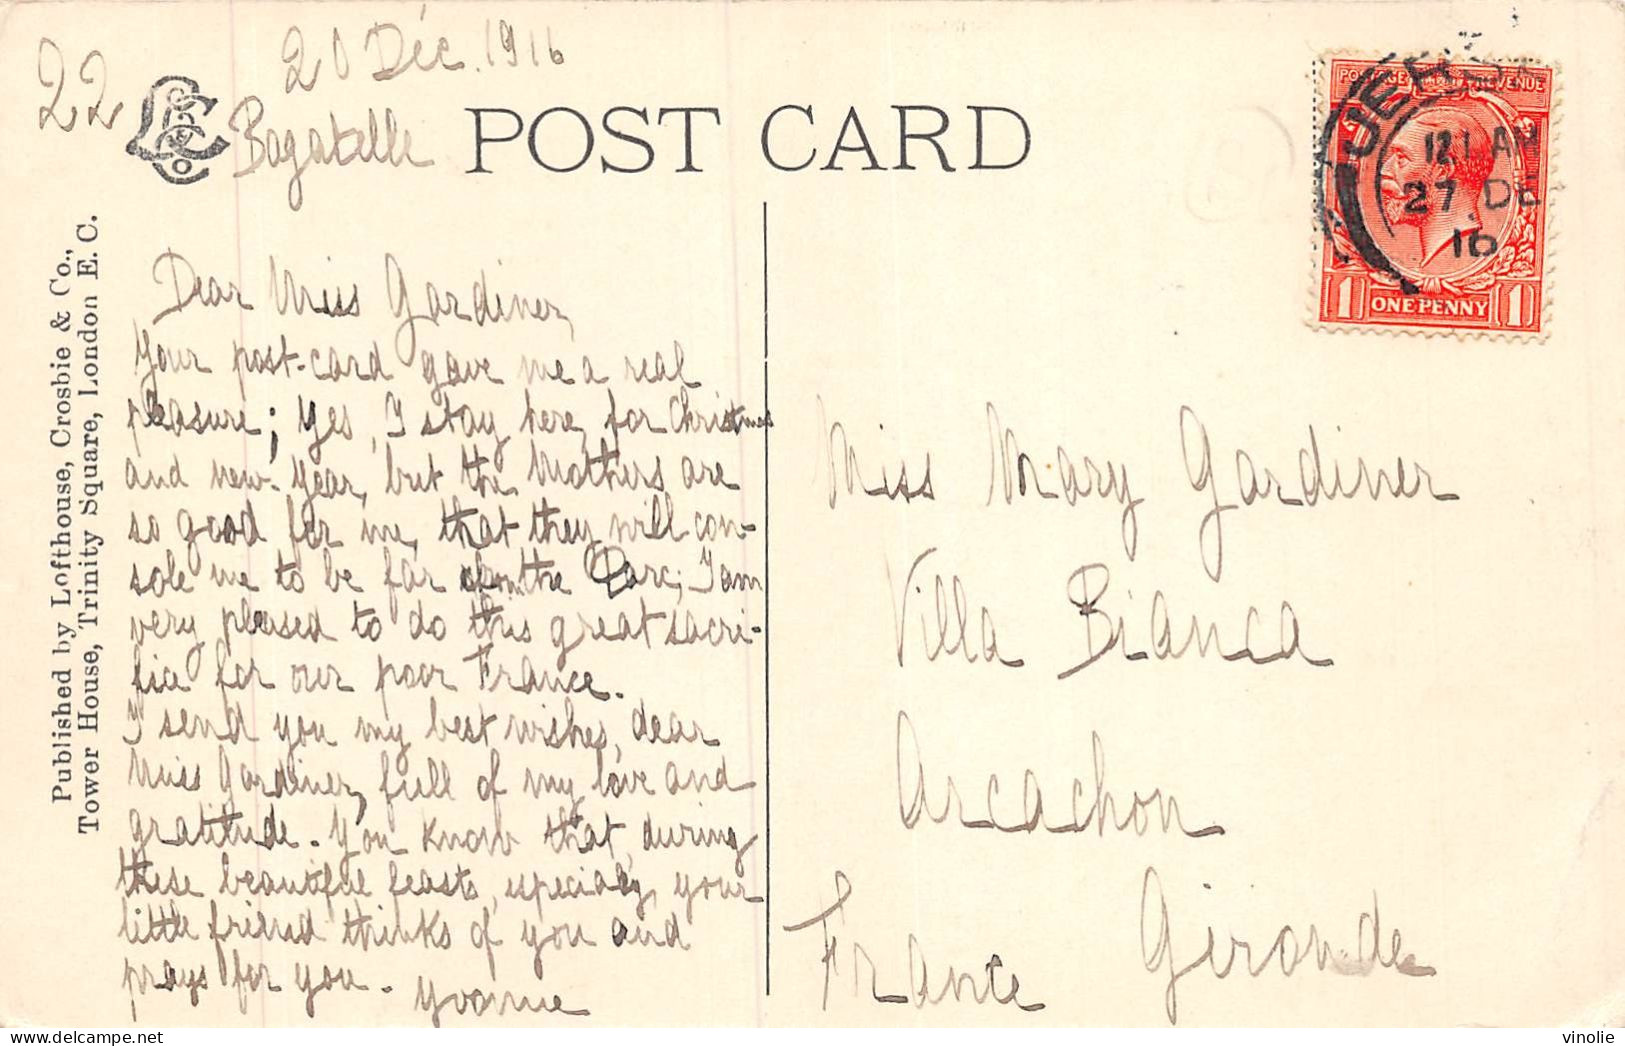 22
20 Déc. 1916
Bagatelle
POST CARD
JERS
12 1 AM
27 DE
16
POSTAGE REVENUE
1 ONE PENNY 1
Published by Lofthouse, Crosbie & Co.,
Tower House, Trinity Square, London E. C.
Dear Miss Gardiner,
Your post-card gave me a real
pleasure; Yes, I stay here, for Christmas
and new-year, but the Mothers are
so good for me, that they will con-
sole me to be far from the Parc; I am
very pleased to do this great sacri-
fice for our poor France.
I send you my best wishes, dear
Miss Gardiner, full of my love and
gratitude. You know that, during
these beautiful feasts, especially, your
little friend thinks of you and
prays for you.
Yvonne
Miss Mary Gardiner
Villa Bianca
Arcachon
Gironde
France
vinolie